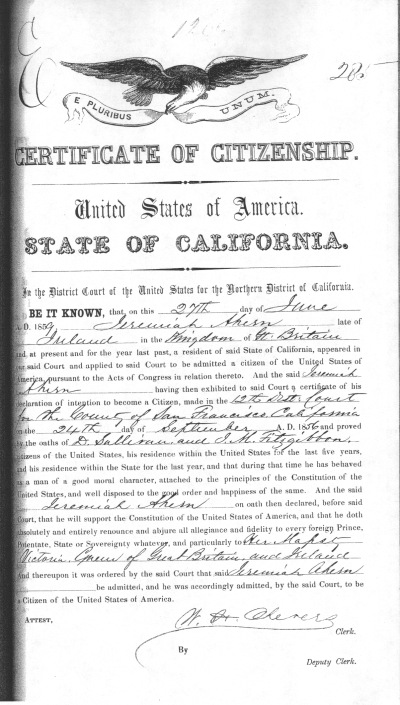 120
285
E PLURIBUS UNUM.
CERTIFICATE OF CITIZENSHIP.
United States of America.
STATE OF CALIFORNIA.
In the District Court of the United States for the Northern District of California.
BE IT KNOWN, that, on this 27th day of June
A. D. 1859 Jeremiah Ahern late of
Ireland in the Kingdom of Gt. Britain
and at present and for the year last past, a resident of said State of California, appeared in
the said Court and applied to said Court to be admitted a citizen of the United States of
America, pursuant to the Acts of Congress in relation thereto. And the said Jeremiah
Ahern having then exhibited to said Court a certificate of his
declaration of intention to become a Citizen, made in the 12th Dist. Court
in the County of San Francisco, California
on the 24th day of September A. D. 1856 and proved
by the oaths of D. Sullivan and J. M. Fitzgibbon,
citizens of the United States, his residence within the United States for the last five years,
and his residence within the State for the last year, and that during that time he has behaved
as a man of a good moral character, attached to the principles of the Constitution of the
United States, and well disposed to the good order and happiness of the same. And the said
Jeremiah Ahern on oath then declared, before said
Court, that he will support the Constitution of the United States of America, and that he doth
absolutely and entirely renounce and abjure all allegiance and fidelity to every foreign Prince,
Potentate, State or Sovereignty whatever, and particularly to Her Majst.
Victoria Queen of Great Britain and Ireland
And thereupon it was ordered by the said Court that said Jeremiah Ahern
be admitted, and he was accordingly admitted, by the said Court, to be
a Citizen of the United States of America.
ATTEST, W. H. Chevers
Clerk.
By
Deputy Clerk.